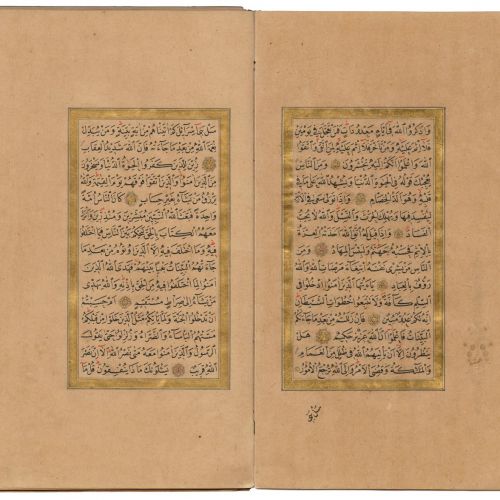 وَاذْكُرُوا اللّٰهَ فِي اَيَّامٍ مَعْدُودَاتٍ فَمَنْ تَعَجَّلَ فِي يَوْمَيْنِ
فَلَا اِثْمَ عَلَيْهِ وَمَنْ تَاَخَّرَ فَلَا اِثْمَ عَلَيْهِ لِمَنِ اتَّقٰى وَاتَّقُوا
اللّٰهَ وَاعْلَمُوا اَنَّكُمْ اِلَيْهِ تُحْشَرُونَ وَمِنَ النَّاسِ
مَنْ يُعْجِبُكَ قَوْلُهُ فِي الْحَيٰوةِ الدُّنْيَا وَيُشْهِدُ اللّٰهَ عَلٰى مَا فِي
قَلْبِهِ وَهُوَ اَلَدُّ الْخِصَامِ وَاِذَا تَوَلّٰى سَعٰى فِي الْاَرْضِ
لِيُفْسِدَ فِيهَا وَيُهْلِكَ الْحَرْثَ وَالنَّسْلَ وَاللّٰهُ لَا يُحِبُّ
الْفَسَادَ وَاِذَا قِيلَ لَهُ اتَّقِ اللّٰهَ اَخَذَتْهُ الْعِزَّةُ
بِالْاِثْمِ فَحَسْبُهُ جَهَنَّمُ وَلَبِئْسَ الْمِهَادُ وَمِنَ
النَّاسِ مَنْ يَشْرِي نَفْسَهُ ابْتِغَاءَ مَرْضَاتِ اللّٰهِ وَاللّٰهُ
رَؤُفٌ بِالْعِبَادِ يَا اَيُّهَا الَّذِينَ اٰمَنُوا ادْخُلُوا فِي
السِّلْمِ كَافَّةً وَلَا تَتَّبِعُوا خُطُوَاتِ الشَّيْطَانِ
اِنَّهُ لَكُمْ عَدُوٌّ مُبِينٌ فَاِنْ زَلَلْتُمْ مِنْ بَعْدِ مَا جَاءَتْكُمُ
الْبَيِّنَاتُ فَاعْلَمُوا اَنَّ اللّٰهَ عَزِيزٌ حَكِيمٌ هَلْ
يَنْظُرُونَ اِلَّا اَنْ يَأْتِيَهُمُ اللّٰهُ فِي ظُلَلٍ مِنَ الْغَمَامِ
وَالْمَلٰئِكَةُ وَقُضِيَ الْاَمْرُ وَاِلَى اللّٰهِ تُرْجَعُ الْاُمُورُ
سَلْ بَنِي
سَلْ بَنِي اِسْرَائِيلَ كَمْ اٰتَيْنَاهُمْ مِنْ اٰيَةٍ بَيِّنَةٍ وَمَنْ يُبَدِّلْ
نِعْمَةَ اللّٰهِ مِنْ بَعْدِ مَا جَاءَتْهُ فَاِنَّ اللّٰهَ شَدِيدُ الْعِقَابِ
زُيِّنَ لِلَّذِينَ كَفَرُوا الْحَيٰوةُ الدُّنْيَا وَيَسْخَرُونَ
مِنَ الَّذِينَ اٰمَنُوا وَالَّذِينَ اتَّقَوْا فَوْقَهُمْ يَوْمَ الْقِيٰمَةِ وَاللّٰهُ
يَرْزُقُ مَنْ يَشَاءُ بِغَيْرِ حِسَابٍ كَانَ النَّاسُ اُمَّةً
وَاحِدَةً فَبَعَثَ اللّٰهُ النَّبِيِّنَ مُبَشِّرِينَ وَمُنْذِرِينَ وَاَنْزَلَ
مَعَهُمُ الْكِتَابَ بِالْحَقِّ لِيَحْكُمَ بَيْنَ النَّاسِ فِيمَا اخْتَلَفُوا
فِيهِ وَمَا اخْتَلَفَ فِيهِ اِلَّا الَّذِينَ اُوتُوهُ مِنْ بَعْدِ مَا
جَاءَتْهُمُ الْبَيِّنَاتُ بَغْيًا بَيْنَهُمْ فَهَدَى اللّٰهُ الَّذِينَ
اٰمَنُوا لِمَا اخْتَلَفُوا فِيهِ مِنَ الْحَقِّ بِاِذْنِهِ وَاللّٰهُ يَهْدِي
مَنْ يَشَاءُ اِلٰى صِرَاطٍ مُسْتَقِيمٍ اَمْ حَسِبْتُمْ
اَنْ تَدْخُلُوا الْجَنَّةَ وَلَمَّا يَأْتِكُمْ مَثَلُ الَّذِينَ خَلَوْا مِنْ قَبْلِكُمْ
مَسَّتْهُمُ الْبَأْسَاءُ وَالضَّرَّاءُ وَزُلْزِلُوا حَتّٰى يَقُولَ
الرَّسُولُ وَالَّذِينَ اٰمَنُوا مَعَهُ مَتٰى نَصْرُ اللّٰهِ اَلَا اِنَّ نَصْرَ
اللّٰهِ قَرِيبٌ يَسْئَلُونَكَ مَاذَا يُنْفِقُونَ قُلْ مَا